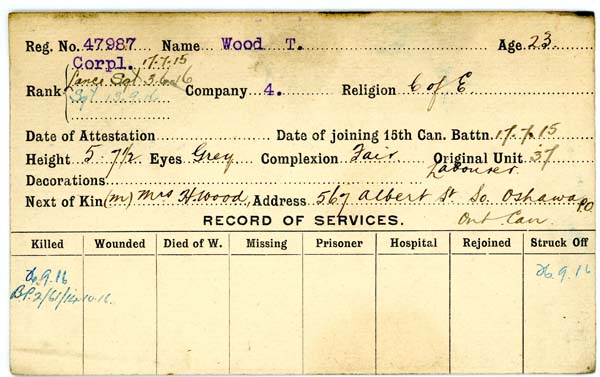 Reg. No. 47987 Name Wood T. Age 23
Corpl. 17.7.15
Rank Lance Sgt 3.6.16 Company 4. Religion C of E
Sgt 3.9.16
Date of Attestation Date of joining 15th Can. Battn. 17.7.15
Height 5-7½ Eyes Grey Complexion Fair Original Unit 37
Decorations Labourer
Next of Kin (m) Mrs H. Wood, Address 567 Albert St So. Oshawa P.O.
Ont Can
RECORD OF SERVICES.
Killed Wounded Died of W. Missing Prisoner Hospital Rejoined Struck Off
9.16 9.16
10.16.